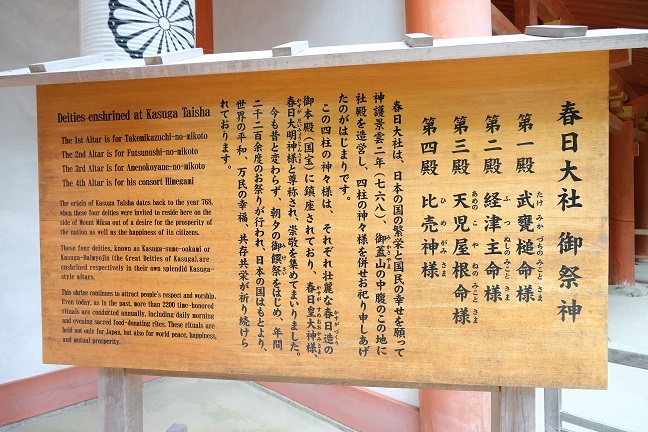 春日大社 御祭神
第一殿 武甕槌命様
たけみかづちのみことさま
第二殿 経津主命様
ふつぬしのみことさま
第三殿 天児屋根命様
あめのこやねのみことさま
第四殿 比売神様
ひめがみさま
春日大社は、日本の国の繁栄と国民の幸せを願って
神護景雲二年(七六八)、御蓋山の中腹のこの地に
みかさやま
社殿を造営し、四柱の神々様を併せお祀り申しあげ
たのがはじまりです。
この四柱の神々様は、それぞれ壮麗な春日造の
かすがづくり
御本殿(国宝)に鎮座されており、春日皇大神様、
かすがすめおおかみさま
春日大明神様と尊称され、崇敬を集めてまいりました。
かすがだいみょうじんさま
今も昔と変わらず、朝夕の御饌祭をはじめ、年間
みけ
二千二百余度のお祭りが行われ、日本の国はもとより、
世界の平和、万民の幸福、共存共栄が祈り続けら
れております。
Deities enshrined at Kasuga Taisha
The 1st Altar is for Takemikazuchi-no-mikoto
The 2nd Altar is for Futsunushi-no-mikoto
The 3rd Altar is for Amenokoyane-no-mikoto
The 4th Altar is for his consort Himegami
The origin of Kasuga Taisha dates back to the year 768,
when these four deities were invited to reside here on the
side of Mount Mikasa out of a desire for the prosperity of
the nation as well as the happiness of its citizens.
These four deities, known as Kasuga-sume-ookami or
Kasuga-daimyojin (the Great Deities of Kasuga), are
enshrined respectively in their own splendid Kasuga-
style altars.
This shrine continues to attract people's respect and worship.
Even today, as in the past, more than 2200 time-honored
rituals are conducted annually, including daily morning
and evening sacred food-donating rites. These rituals are
held not only for Japan, but also for world peace, happiness,
and mutual prosperity.